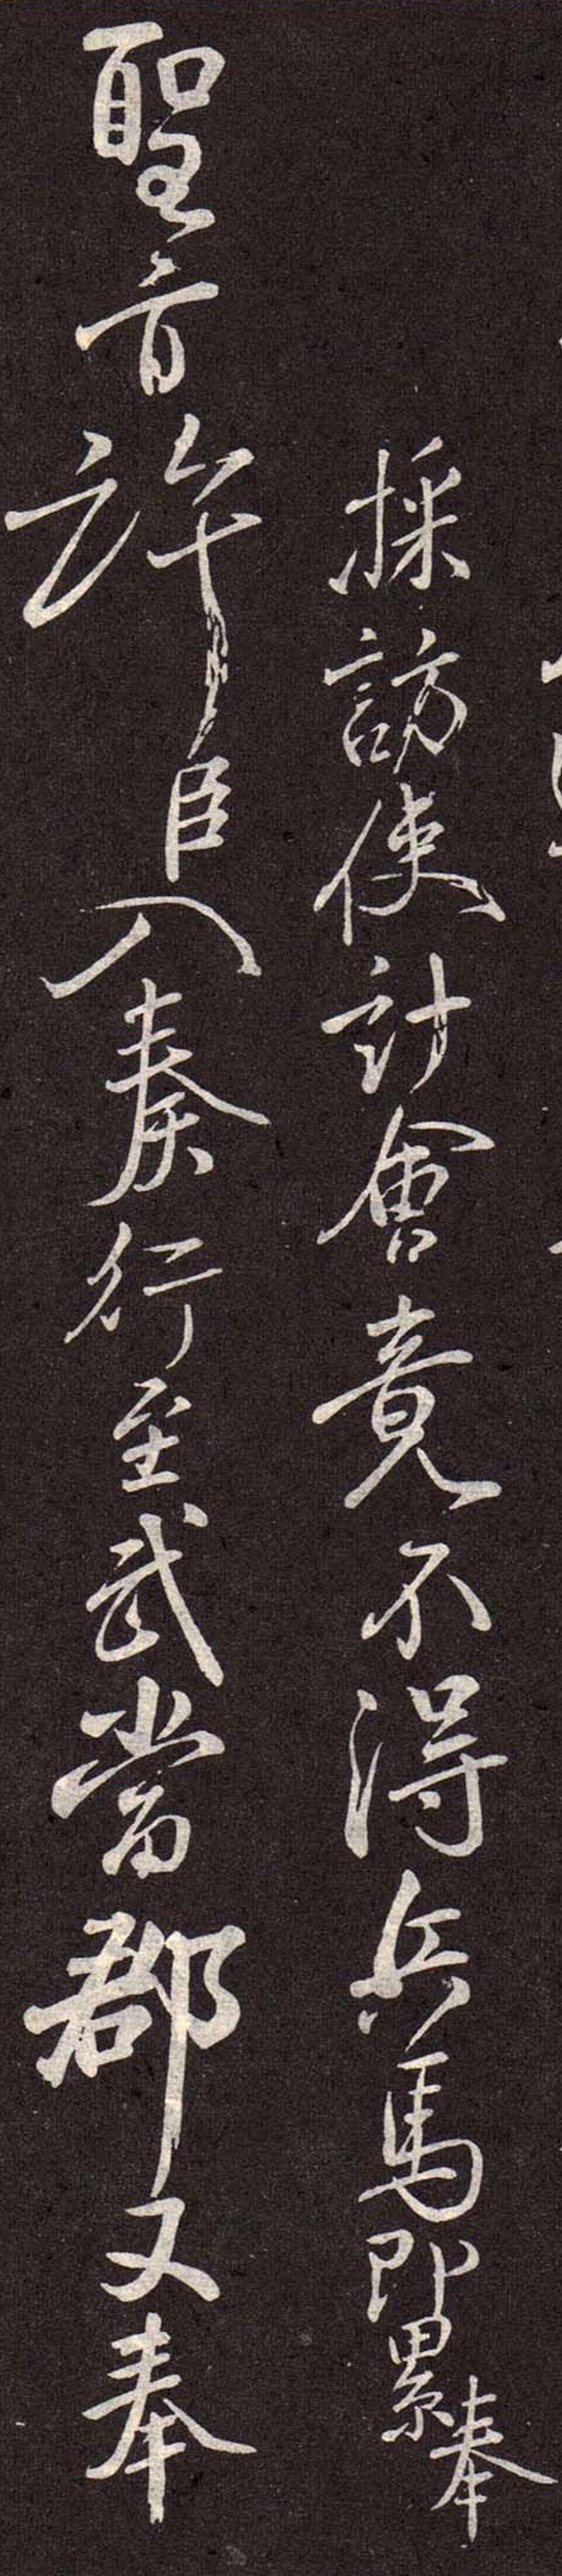 採訪使計會竟不得兵馬即累奉
聖旨許臣入奏行至武當郡又奉